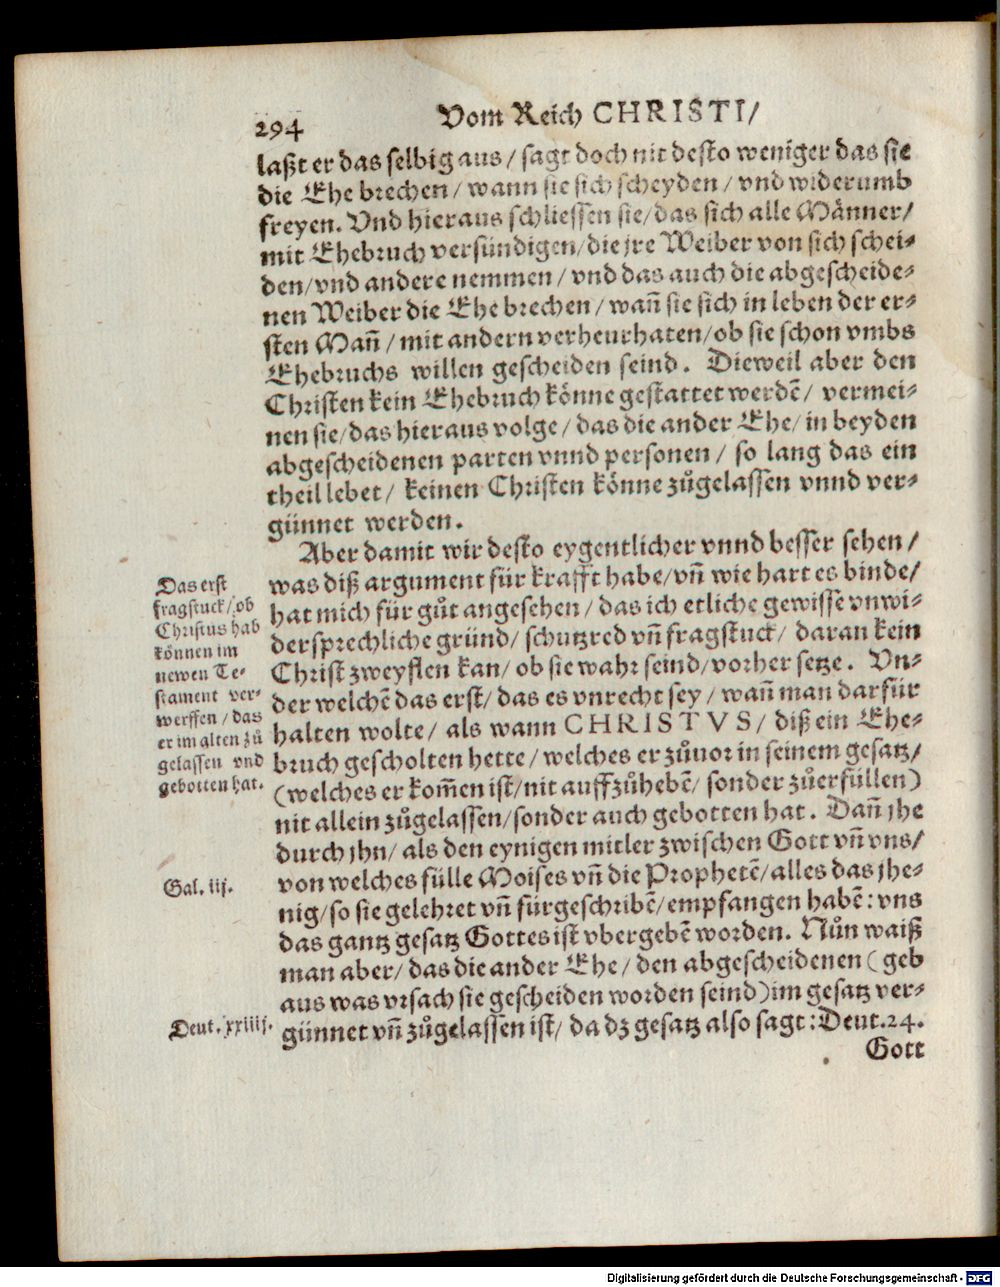 294 Vom Reich CHRISTI/
laßt er das selbig aus / sagt doch nit desto weniger das sie
die Ehe brechen / wann sie sich scheyden / vnd widerumb
freyen. Vnd hieraus schliessen sie / das sich alle Männer/
mit Ehebruch versündigen / die jre Weiber von sich schei-
den / vnd andere nemmen / vnd das auch die abgescheide-
nen Weiber die Ehe brechen / wañ sie sich in leben der er-
sten Mañ / mit andern verheurhaten / ob sie schon vmbs
Ehebruchs willen gescheiden seind. Dieweil aber den
Christen kein Ehebruch könne gestattet werdē / vermei-
nen sie / das hieraus volge / das die ander Ehe / in beyden
abgescheidenen parten vnnd personen / so lang das ein
theil lebet / keinen Christen könne zůgelassen vnnd ver-
günnet werden.
Aber damit wir desto eygentlicher vnnd besser sehen /
was diß argument für krafft habe / vñ wie hart es binde/
hat mich für gůt angesehen / das ich etliche gewisse vnwi-
dersprechliche gründ / schutzred vñ fragstuck / daran kein
Christ zweyflen kan / ob sie wahr seind / vorher setze. Vn-
der welchē das erst / das es vnrecht sey / wañ man darfür
halten wolte / als wann CHRISTVS / diß ein Ehe-
bruch gescholten hette / welches er zůuor in seinem gesatz/
(welches er kom̃en ist / nit auffzůhebē / sonder zůerfüllen)
nit allein zůgelassen / sonder auch gebotten hat. Dañ jhe
durch jhn / als den eynigen mitler zwischen Gott vñ vns/
von welches fülle Moises vñ die Prophetē / alles das jhe-
nig / so sie gelehret vñ fürgeschribē / empfangen habē : vns
das gantz gesatz Gottes ist vbergebē worden. Nůn waiß
man aber / das die ander Ehe / den abgescheidenen (geb
aus was vrsach sie gescheiden worden seind) im gesatz ver-
günnet vñ zůgelassen ist / da dz gesatz also sagt : Deut. 24.
Gott
Das erst
fragstuck / ob
Christus hab
können im
newen Te-
stament ver-
werffen / das
er im alten zů
gelassen vnd
gebotten hat.
Gal. iij.
Deut. xxiiij.
Digitalisierung gefördert durch die Deutsche Forschungsgemeinschaft - DFG